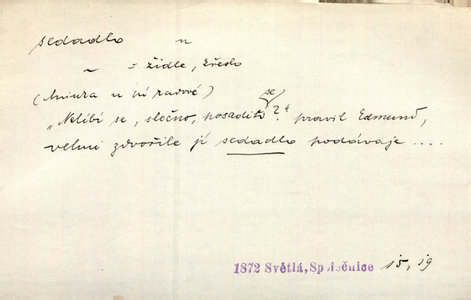 sedadlo n
~ = židle, křeslo
( u
"Nelíbí se, slečno, posaditi se?" pravil Edmund,
velmi zdvořile jí sedadlo podávaje ....
1872 Světlá, Společnice 15, 19